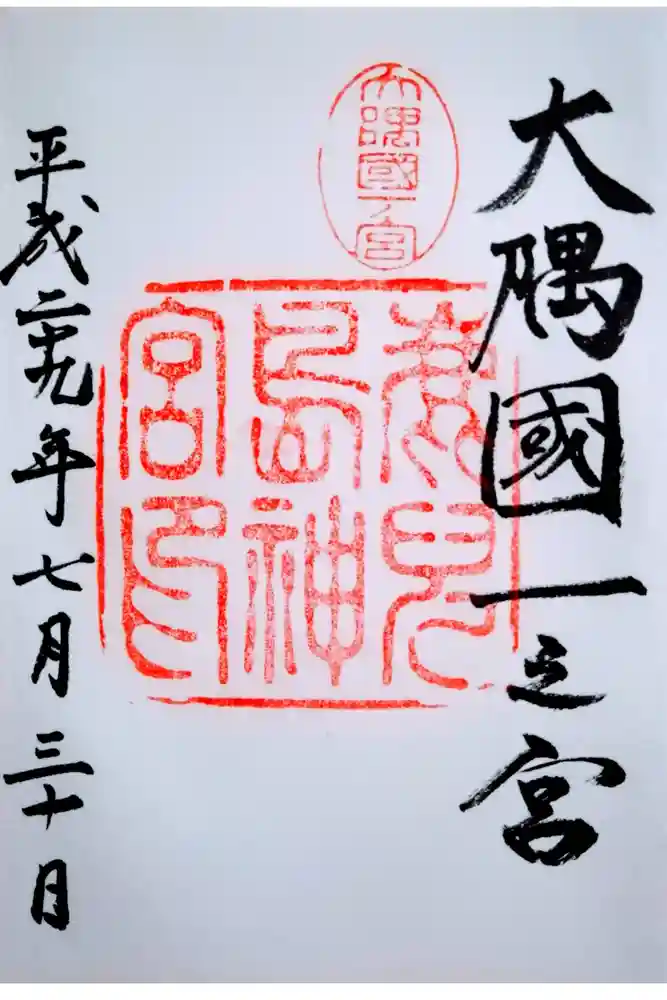 大隅國一之宮
大隅國一宮
鹿兒島神宮印
平成二十九年七月三十日